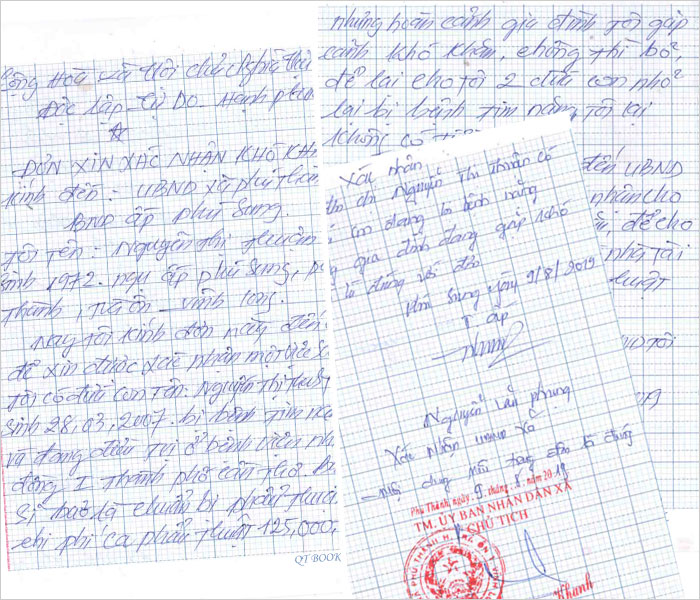 Cộng Hoà Xã Hội Chủ Nghĩa Việt
Độc lập - Tự Do - Hạnh phúc
ĐƠN XIN XÁC NHẬN KHÓ KH
Kính đến: UBND xã phú Thành
BND ấp phú Sung.
Tôi Tên: Nguyễn Thị Thuấn
sinh 1972. ngụ ấp phú Sung, p
Thành, Trà ôn - Vĩnh Long.
Nay tôi kính đơn này đến
để xin được xác nhận một việc
Tôi có đứa con Tên: Nguyễn Thị
sinh 28, 03, 2007. bị bệnh tim
và đang điều trị ở bệnh viện nh
đồng I Thành phố cần Thơ. B
Sĩ bảo là chuẩn bị phẩu thuậ
chi phí ca phẩu thuật 125,000,
QT BOOK
nhưng hoàn cảnh gia đình tôi gặp
cảnh khó khăn, chồng thì bỏ,
để lại cho tôi 2 đứa con nhỏ
lại bị bệnh tim nặng, tôi lại
không có
đến UBND
nhân cho
để cho
nhà tài
thuật
tôi
Xác nhận
chị Nguyễn Thị Thuấn có
con đang bị bệnh nặng
gia đình đang gặp khó
là đúng
Phú Sung ngày 9/8/2019
T ấp
Nguyễn Văn phung
Xác nhận UBND xã
nội dung nêu trong đơn là đúng
Phú Thành, ngày 9 tháng 8 năm 2019
TM. ỦY BAN NHÂN DÂN XÃ
CHỦ TỊCH
Khanh